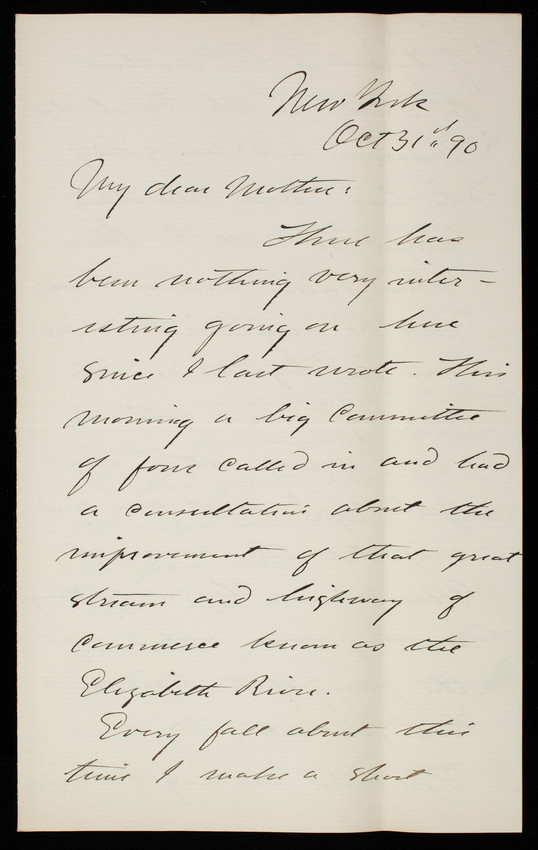 New York
Oct 31st 90
My dear Mother:
There has
been nothing very inter-
esting going on here
since I last wrote. This
morning a big Committee
of four called in and had
a consultation about the
improvement of that great
stream and highway of
commerce known as the
Elizabeth River.
Every fall about this
time I make a short